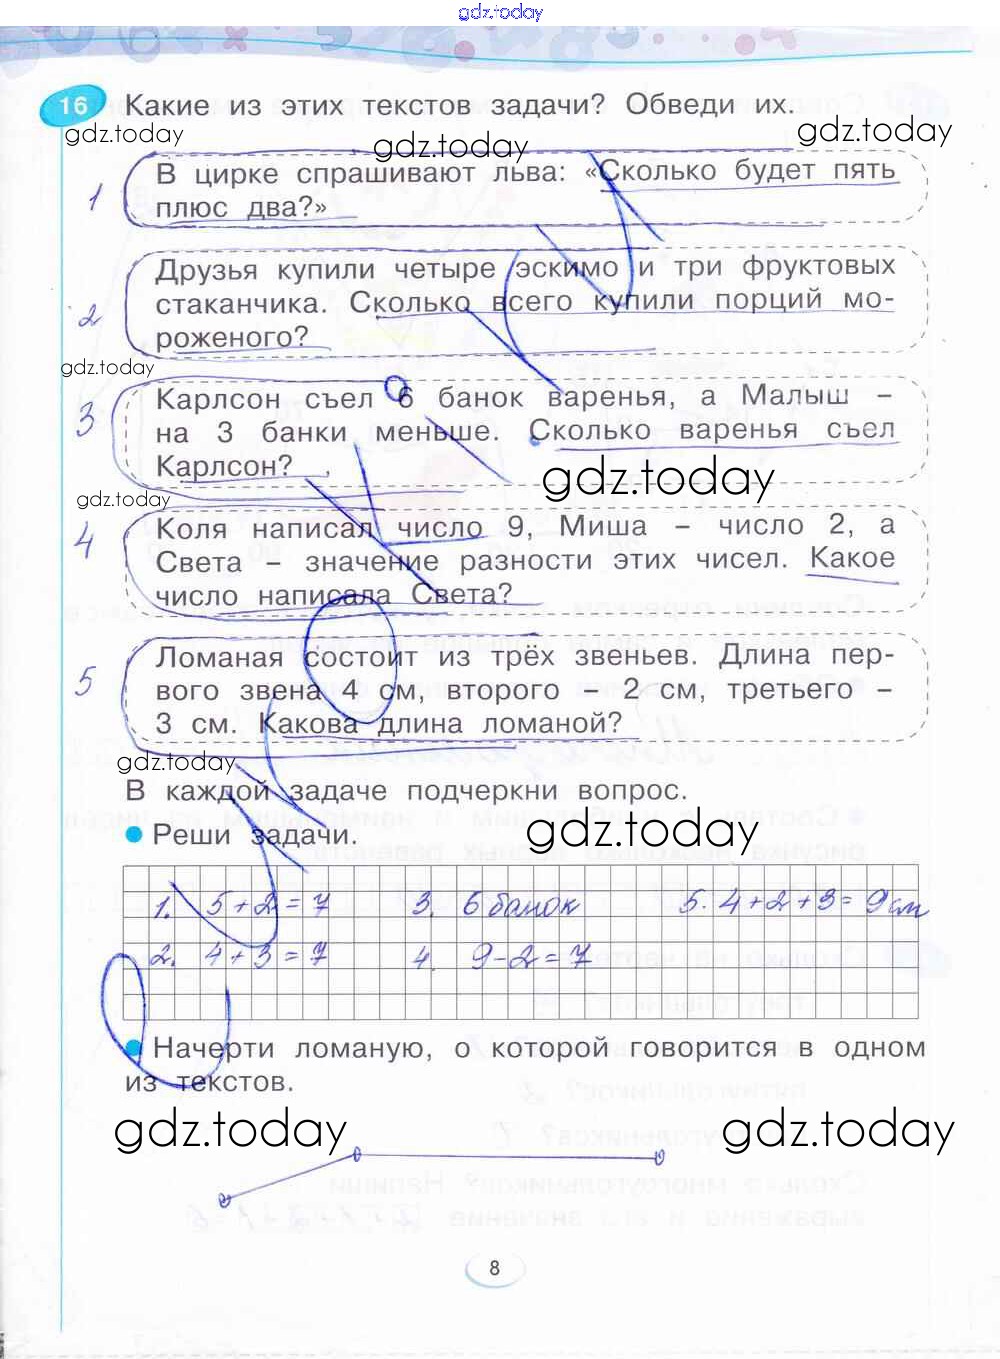 gdz.today
16 Какие из этих текстов задачи? Обведи их.
gdz.today gdz.today gdz.today
1 В цирке спрашивают льва: «Сколько будет пять
плюс два?»
Друзья купили четыре эскимо и три фруктовых
2 стаканчика. Сколько всего купили порций мо-
роженого?
gdz.today
3 Карлсон съел 6 банок варенья, а Малыш –
на 3 банки меньше. Сколько варенья съел
Карлсон?
gdz.today
gdz.today
4 Коля написал число 9, Миша – число 2, а
Света – значение разности этих чисел. Какое
число написала Света?
5 Ломаная состоит из трёх звеньев. Длина пер-
вого звена 4 см, второго – 2 см, третьего –
3 см. Какова длина ломаной?
gdz.today
В каждой задаче подчеркни вопрос.
• Реши задачи.
gdz.today
1. 5+2=7 3. 6 банок 5. 4+2+3=9 см
2. 4+3=7 4. 9-2=7
• Начерти ломаную, о которой говорится в одном
из текстов.
gdz.today gdz.today
8